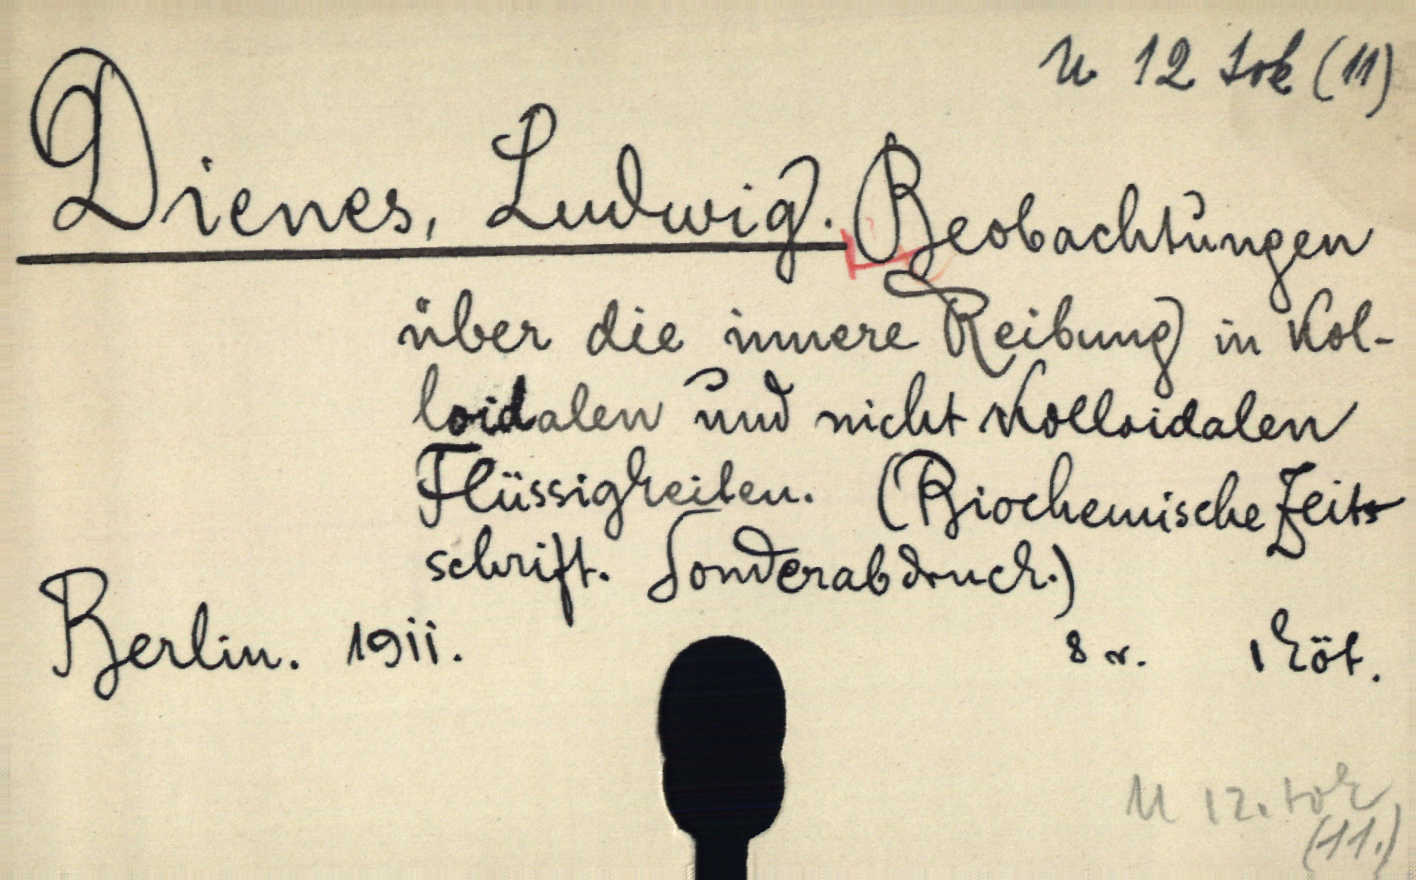 U 12 sok (11)
Dienes, Ludwig. Beobachtungen
über die innere Reibung in Kol-
loidalen und nicht Kolloidalen
Flüssigkeiten. (Biochemische Zeits
schrift. Sonderabdruck.)
Berlin. 1911. 8 r. 1 köt.
U 12. sok
(11.)